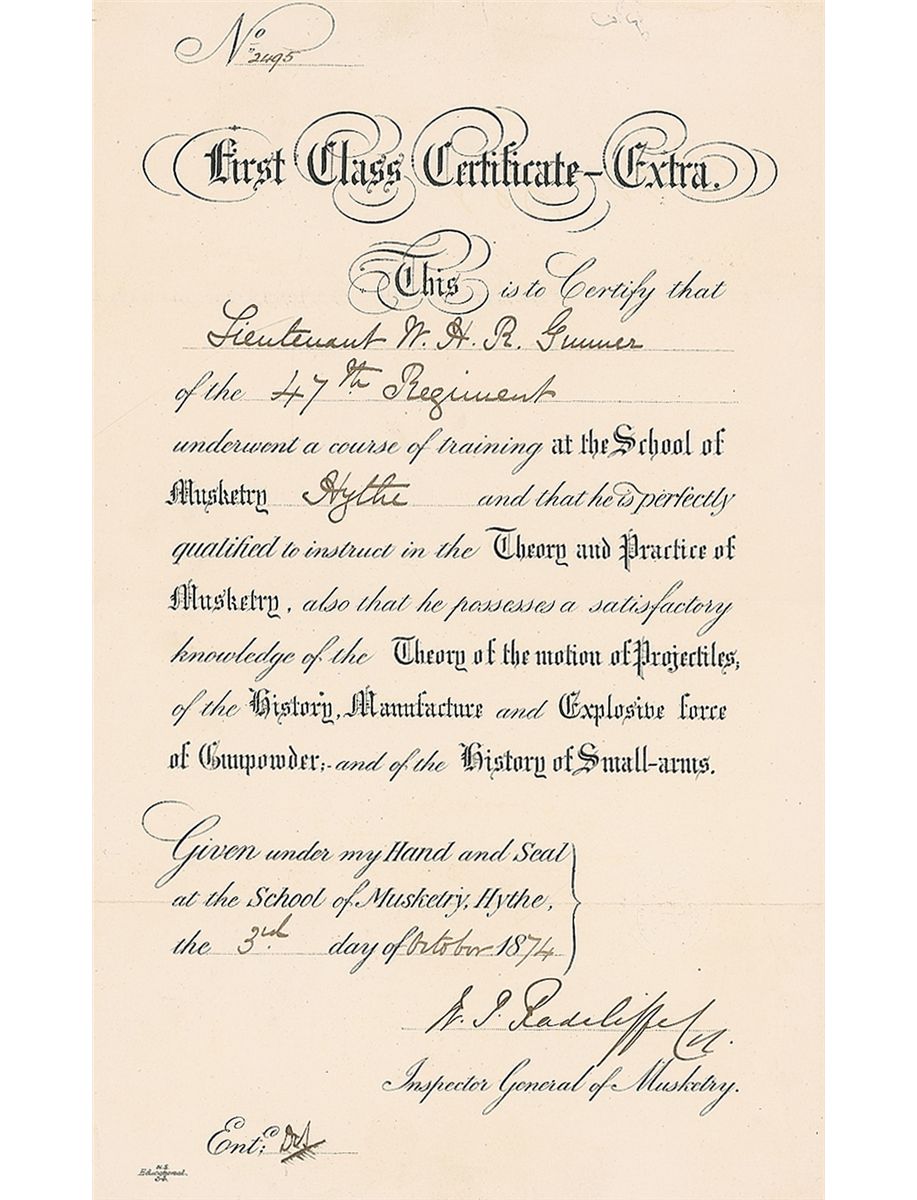 No 2495
First Class Certificate – Extra.
This is to Certify that
Lieutenant W. H. R. Gunner
of the 47th Regiment
underwent a course of training at the School of
Musketry Hythe and that he is perfectly
qualified to instruct in the Theory and Practice of
Musketry, also that he possesses a satisfactory
knowledge of the Theory of the motion of Projectiles;
of the History, Manufacture and Explosive force
of Gunpowder;- and of the History of Small-arms.
Given under my Hand and Seal
at the School of Musketry, Hythe,
the 3rd day of October 1874
Radcliffe Col.
Inspector General of Musketry.
Entd:
Educational